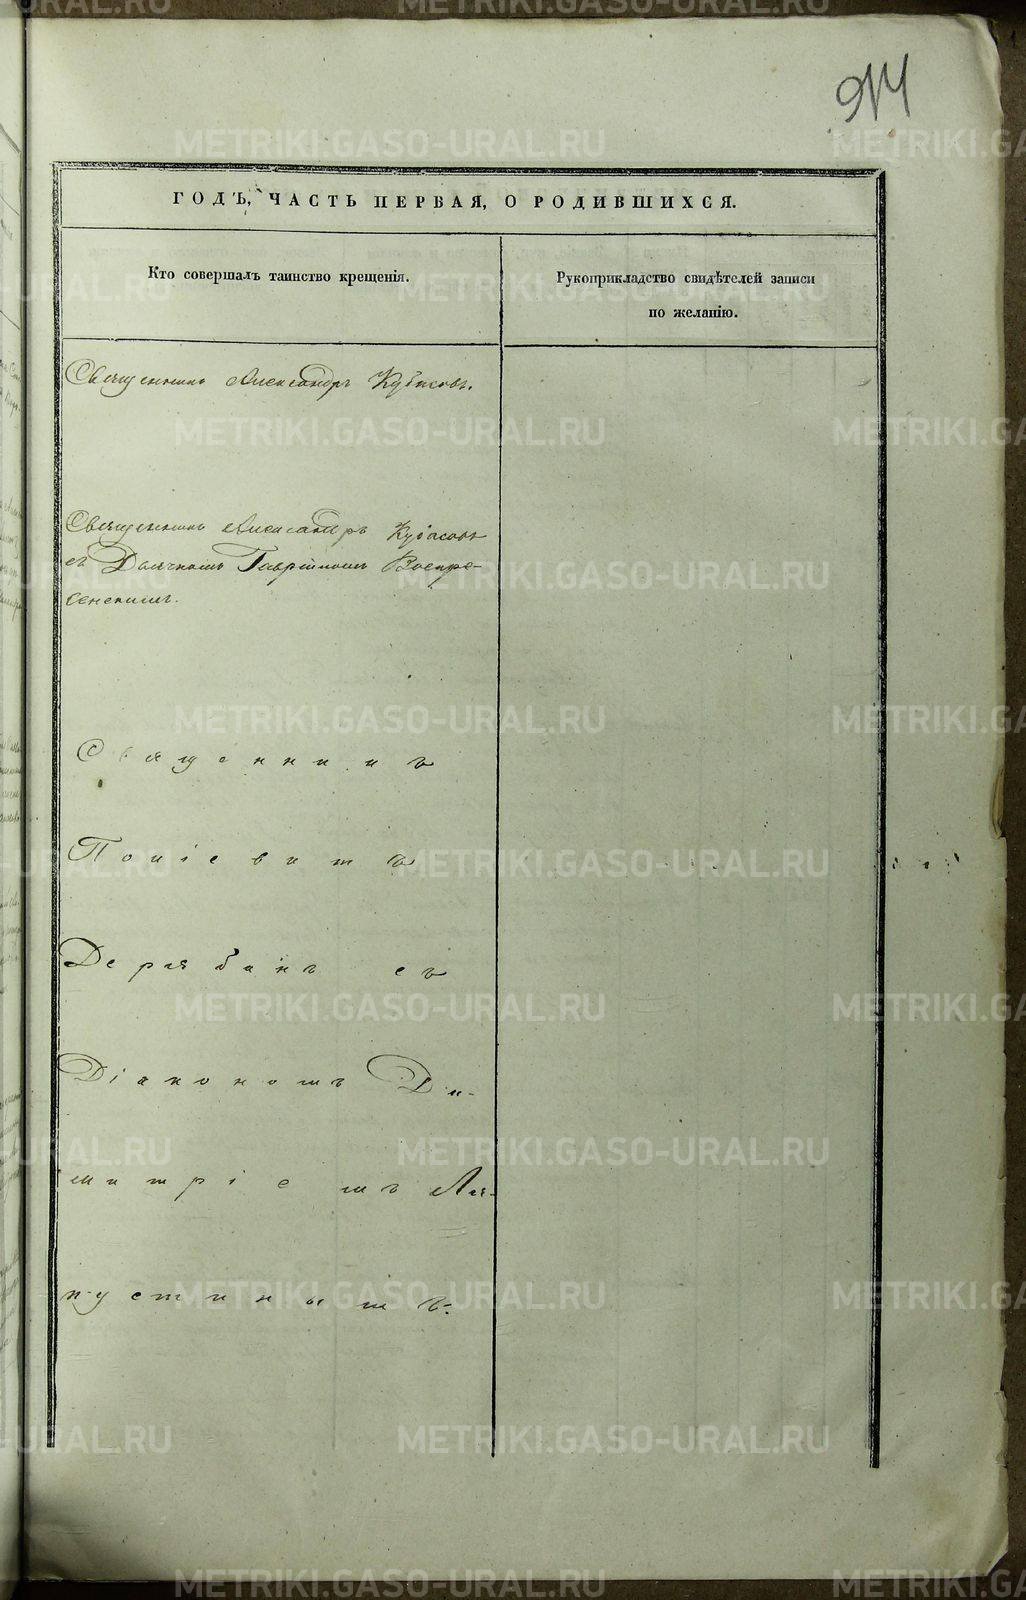 914
ГОДЪ, ЧАСТЬ ПЕРВАЯ, О РОДИВШИХСЯ.
Кто совершалъ таинство крещенія.
Рукоприкладство свидѣтелей записи
по желанію.
Священникъ Александръ Кубасовъ.
Священникъ Александръ Кубасовъ
съ Дьячкомъ Гавріиломъ Воскре-
сенскимъ.
Священникъ
Поліевктъ
Дерябинъ съ
Діакономъ Ди-
митріемъ Ля-
пустинымъ.
METRIKI.GASO-URAL.RU